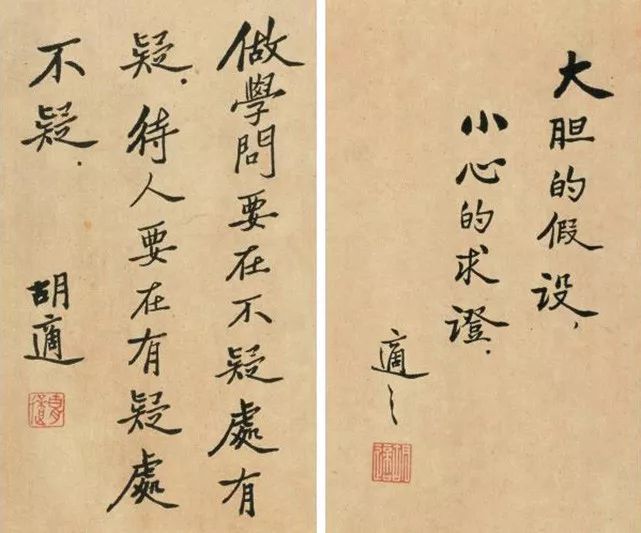 做學問要在不疑處有
疑．待人要在有疑處
不疑．
胡適
大胆的假设，
小心的求證．
適之